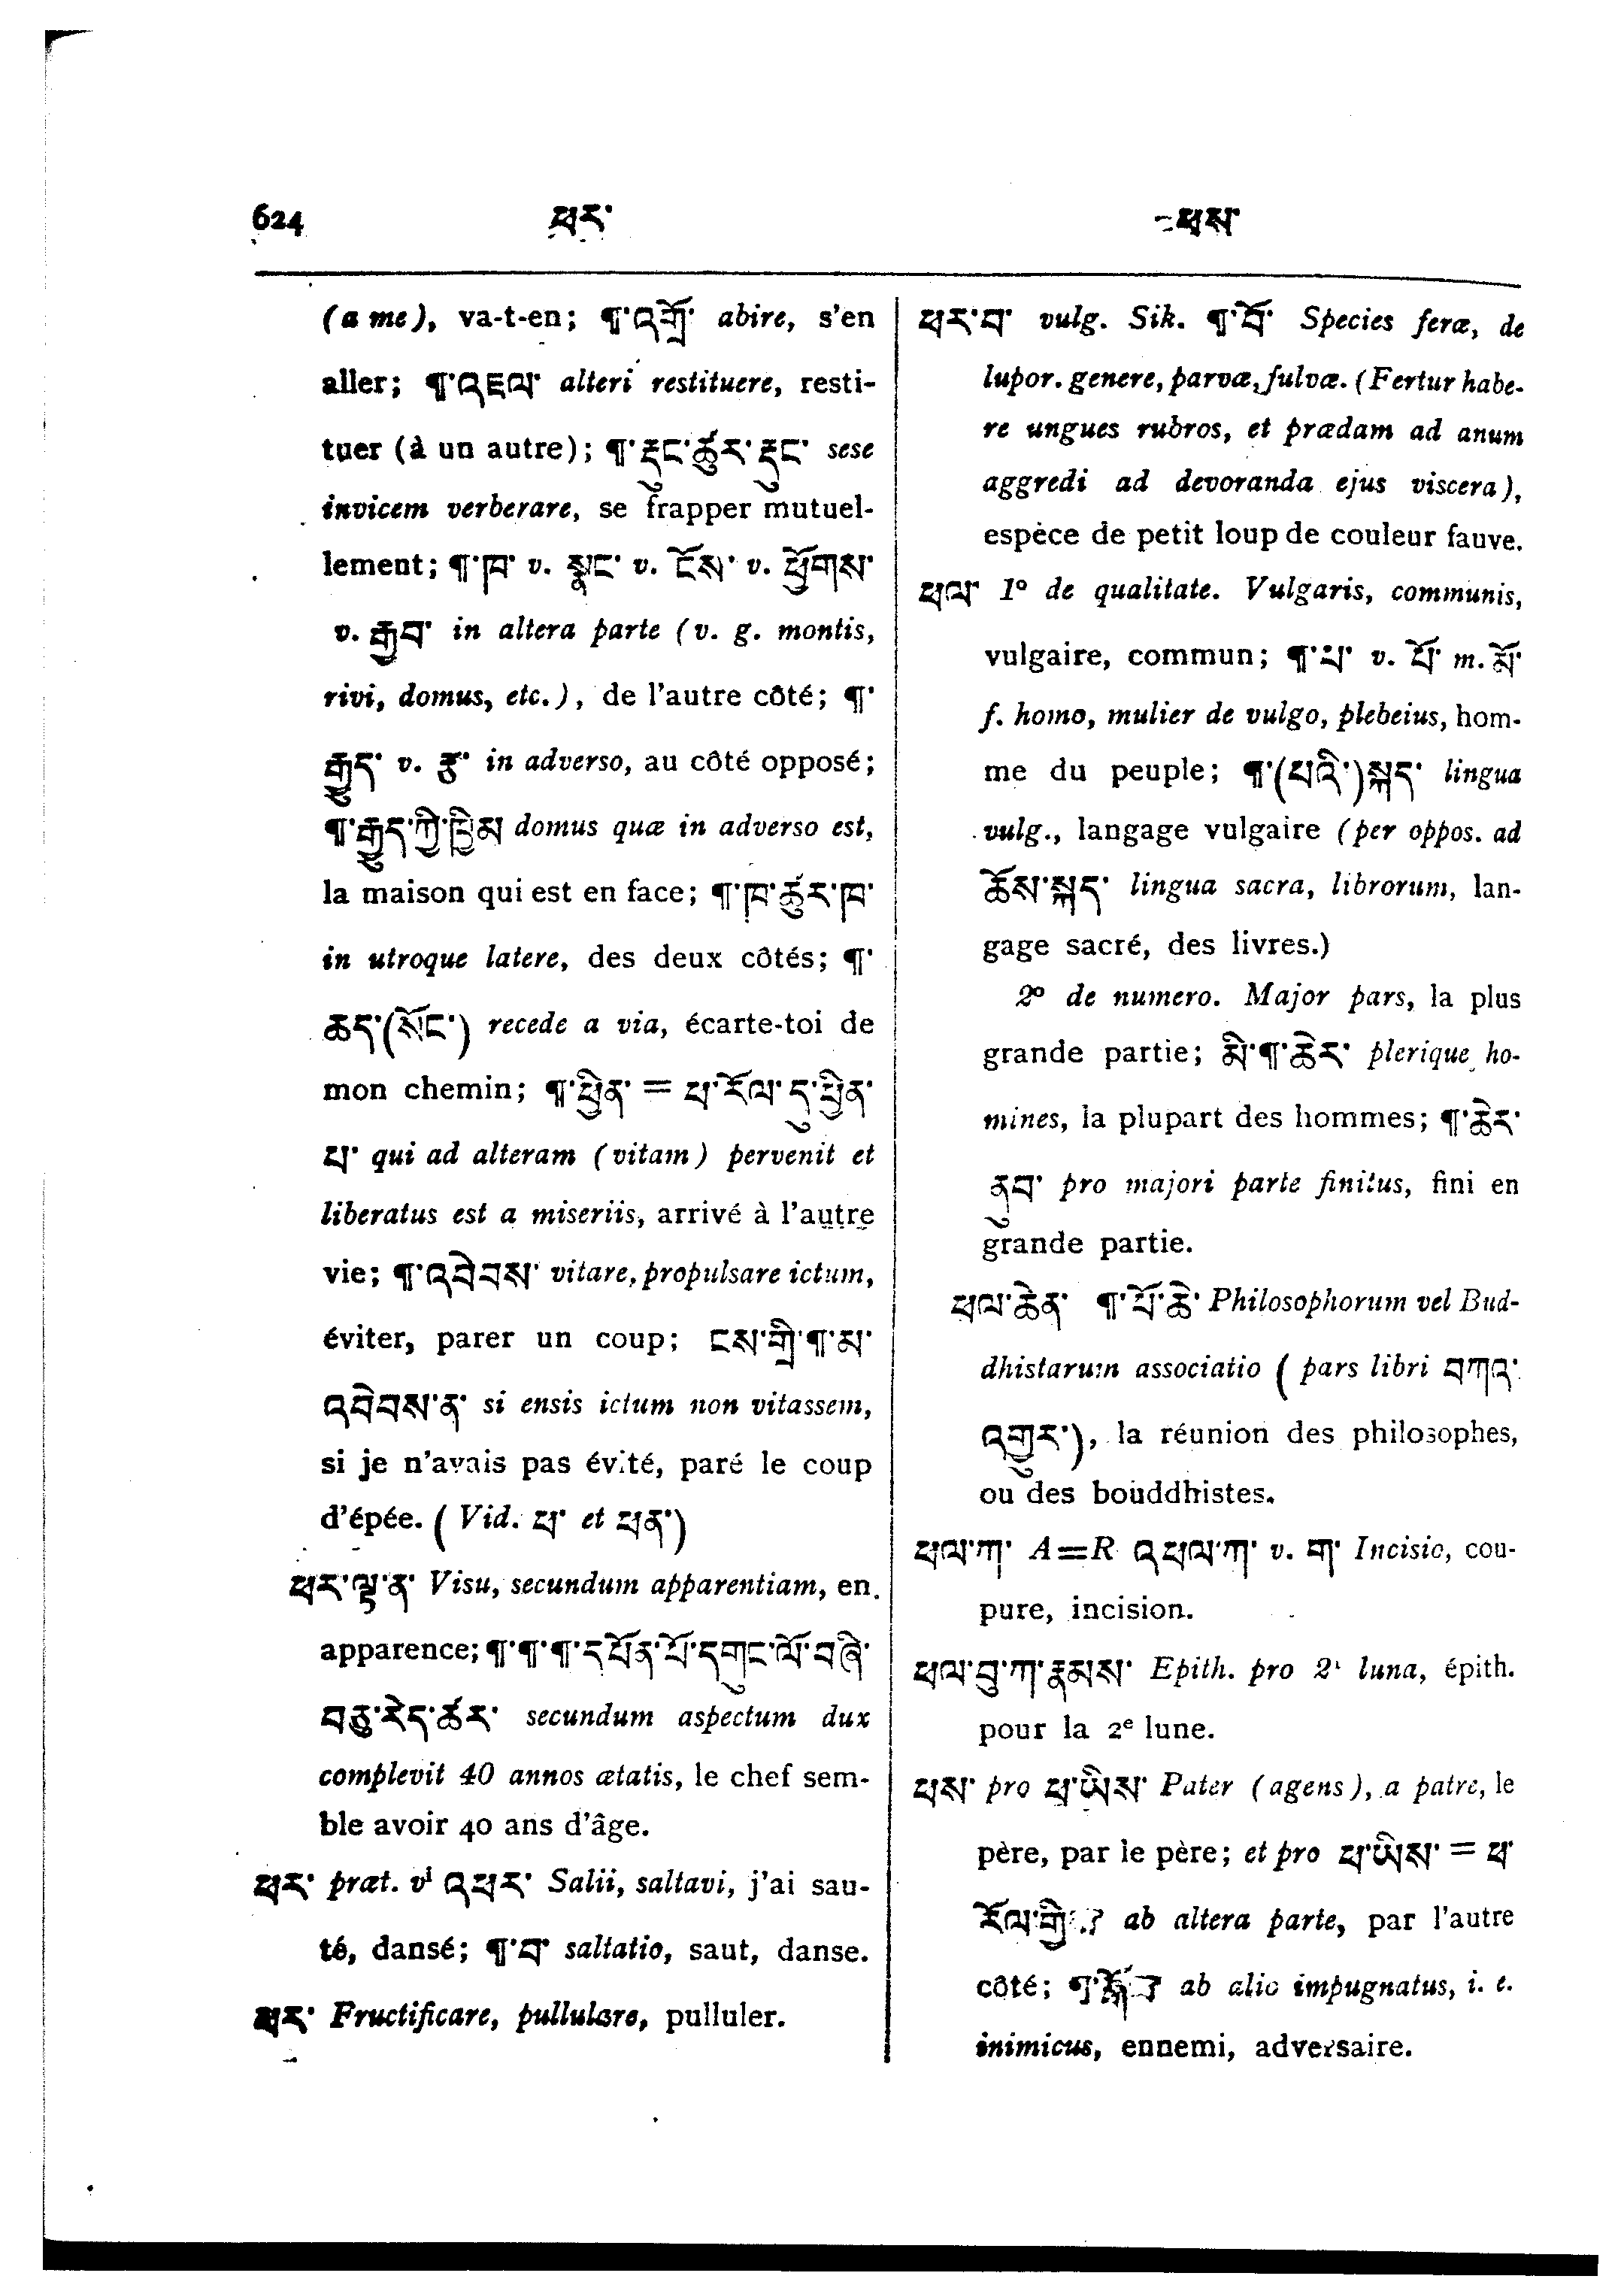 624 ཕར་ -ཕས་
(a me), va-t-en; ¶་འགྲོ་ abire, s'en
aller; ¶་འཇལ་ alteri restituere, resti-
tuer (à un autre); ¶་རྡུང་ཚུར་རྡུང་ sese
invicem verberare, se frapper mutuel-
lement; ¶་ཁ་ v. སྣང་ v. ངོས་ v. ཕྱོགས་
v. རྒྱབ་ in altera parte (v. g. montis,
rivi, domus, etc.), de l'autre côté; ¶་
རྒྱུད་ v. རྩ་ in adverso, au côté opposé;
¶་རྒྱུད་ཀྱི་ཁྱིམ domus quæ in adverso est,
la maison qui est en face; ¶་ཁ་ཚུར་ཁ་
in utroque latere, des deux côtés; ¶་
ཆད་(སོང་) recede a via, écarte-toi de
mon chemin; ¶་ཕྱིན་ = ཕ་རོལ་ཏུ་ཕྱིན་
པ་ qui ad alteram (vitam) pervenit et
liberatus est a miseriis, arrivé à l'autre
vie; ¶་འབེབས་ vitare, propulsare ictum,
éviter, parer un coup; ངས་གྲི་¶་མ་
འབེབས་ན་ si ensis ictum non vitassem,
si je n'avais pas évité, paré le coup
d'épée. (Vid. ཕ་ et ཕན་)
ཕར་ལྟ་ན་ Visu, secundum apparentiam, en
apparence; ¶་¶་¶་དཔོན་པོ་དགུང་ལོ་བཞི་
བཅུ་རེད་ཚར་ secundum aspectum dux
complevit 40 annos ætatis, le chef sem-
ble avoir 40 ans d'âge.
ཕར་ præt. vⁱ འཕར་ Salii, saltavi, j'ai sau-
té, dansé; ¶་བ་ saltatio, saut, danse.
ཕར་ Fructificare, pullulare, pulluler.
ཕར་བ་ vulg. Sik. ¶་བོ་ Species feræ, de
lupor. genere, parvæ, fulvæ. (Fertur habe-
re ungues rubros, et prædam ad anum
aggredi ad devoranda ejus viscera),
espèce de petit loup de couleur fauve.
ཕལ་ 1º de qualitate. Vulgaris, communis,
vulgaire, commun; ¶་པ་ v. པོ་ m. མོ་
f. homo, mulier de vulgo, plebeius, hom-
me du peuple; ¶་(པའི་)སྐད་ lingua
vulg., langage vulgaire (per oppos. ad
ཆོས་སྐད་ lingua sacra, librorum, lan-
gage sacré, des livres.)
2º de numero. Major pars, la plus
grande partie; མི་¶་ཆེར་ plerique ho-
mines, la plupart des hommes; ¶་ཆེར་
ནུབ་ pro majori parte finitus, fini en
grande partie.
ཕལ་ཆེན་ ¶་པོ་ཆེ་ Philosophorum vel Bud-
dhistarum associatio (pars libri བཀའ་
འགྱུར་), la réunion des philosophes,
ou des bouddhistes.
ཕལ་ཀ་ A=R འཕལ་ཀ་ v. ག་ Incisio, cou-
pure, incision.
ཕལ་བུ་ཀ་རྣམས་ Epith. pro 2ⁱ luna, épith.
pour la 2e lune.
ཕས་ pro ཕ་ཡིས་ Pater (agens), a patre, le
père, par le père; et pro ཕ་ཡིས་ = ཕ་
རོལ་གྱི ab altera parte, par l'autre
côté; ¶་ ab alio impugnatus, i. e.
inimicus, ennemi, adversaire.